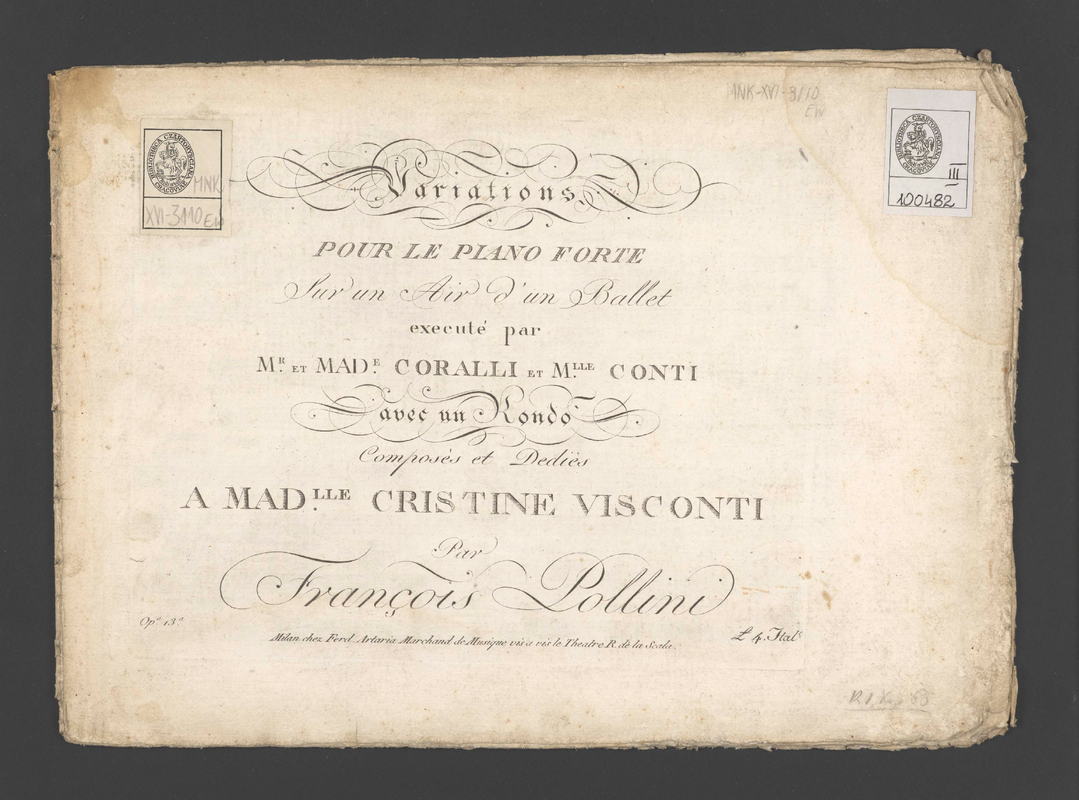 MNK-XVI-3110
EW
BIBLIOTHECA CZARTORYSCIANA CRACOVIAE
MNK
XVI-3110 EW
BIBLIOTHECA CZARTORYSCIANA CRACOVIAE
III
100482
Variations
POUR LE PIANO FORTE
Sur un Air d'un Ballet
executé par
M.R ET MAD.E CORALLI ET M.LLE CONTI
avec un Rondo
Composés et Dediés
A MAD.LLE CRISTINE VISCONTI
Par
François Pollini
Op.a 13.a
Milan chez Ferd. Artaria Marchand de Musique vis a vis le Theatre R. de la Scala.
L 4. Ital.s